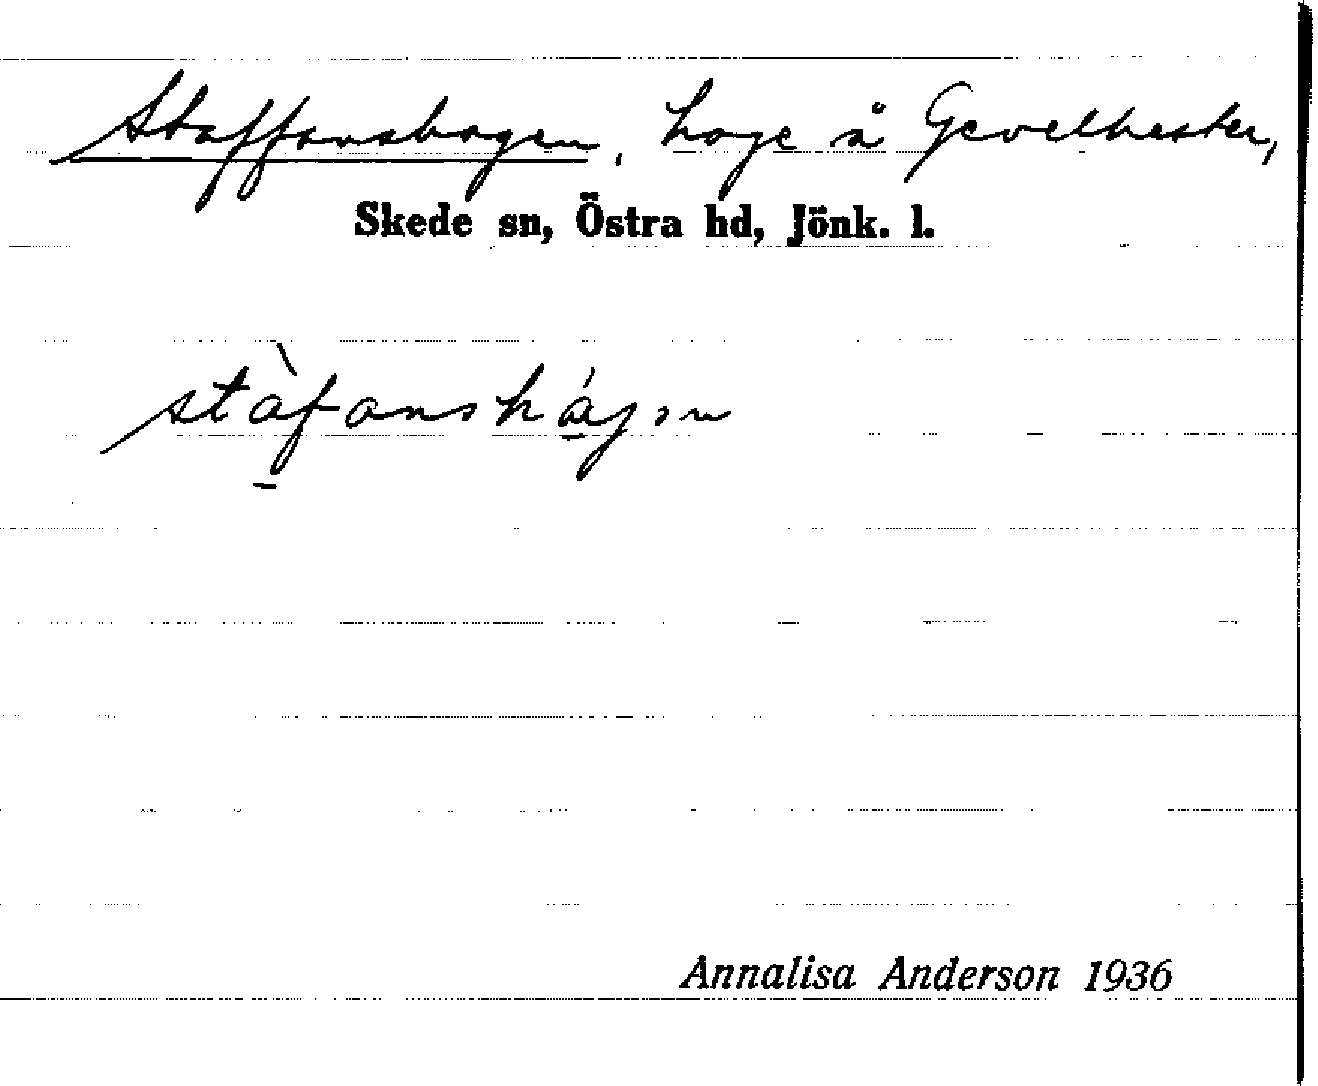 Staffanshagen, hage å Gevelhester,
Skede sn, Östra hd, Jönk. l.
stàfanshágən
Annalisa Anderson 1936